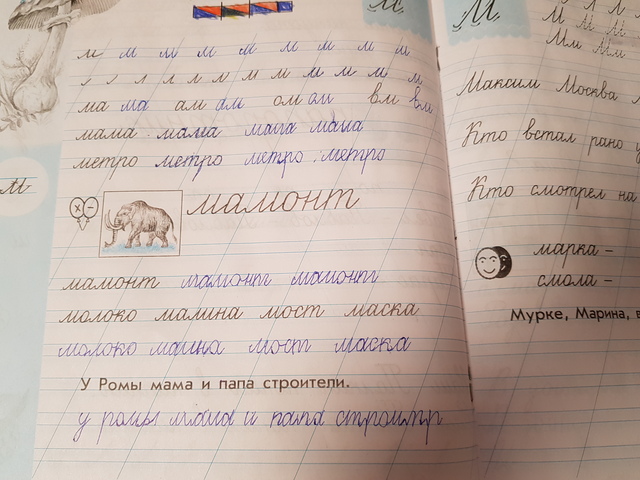 м м м м м м м м м
л л л м м м м м м
ма ма ам ам ом ом вм вм
мама мама мама мама
метро метро метро метро
м
мамонт
мамонт мамонт мамонт
молоко малина мост маска
молоко маина мост маска
У Ромы мама и папа строители.
у ромы мама и папа строитр
М
М
Мм Мм
Максим Москва
Кто встал рано
Кто смотрел на
марка -
смола -
Мурке, Марина,